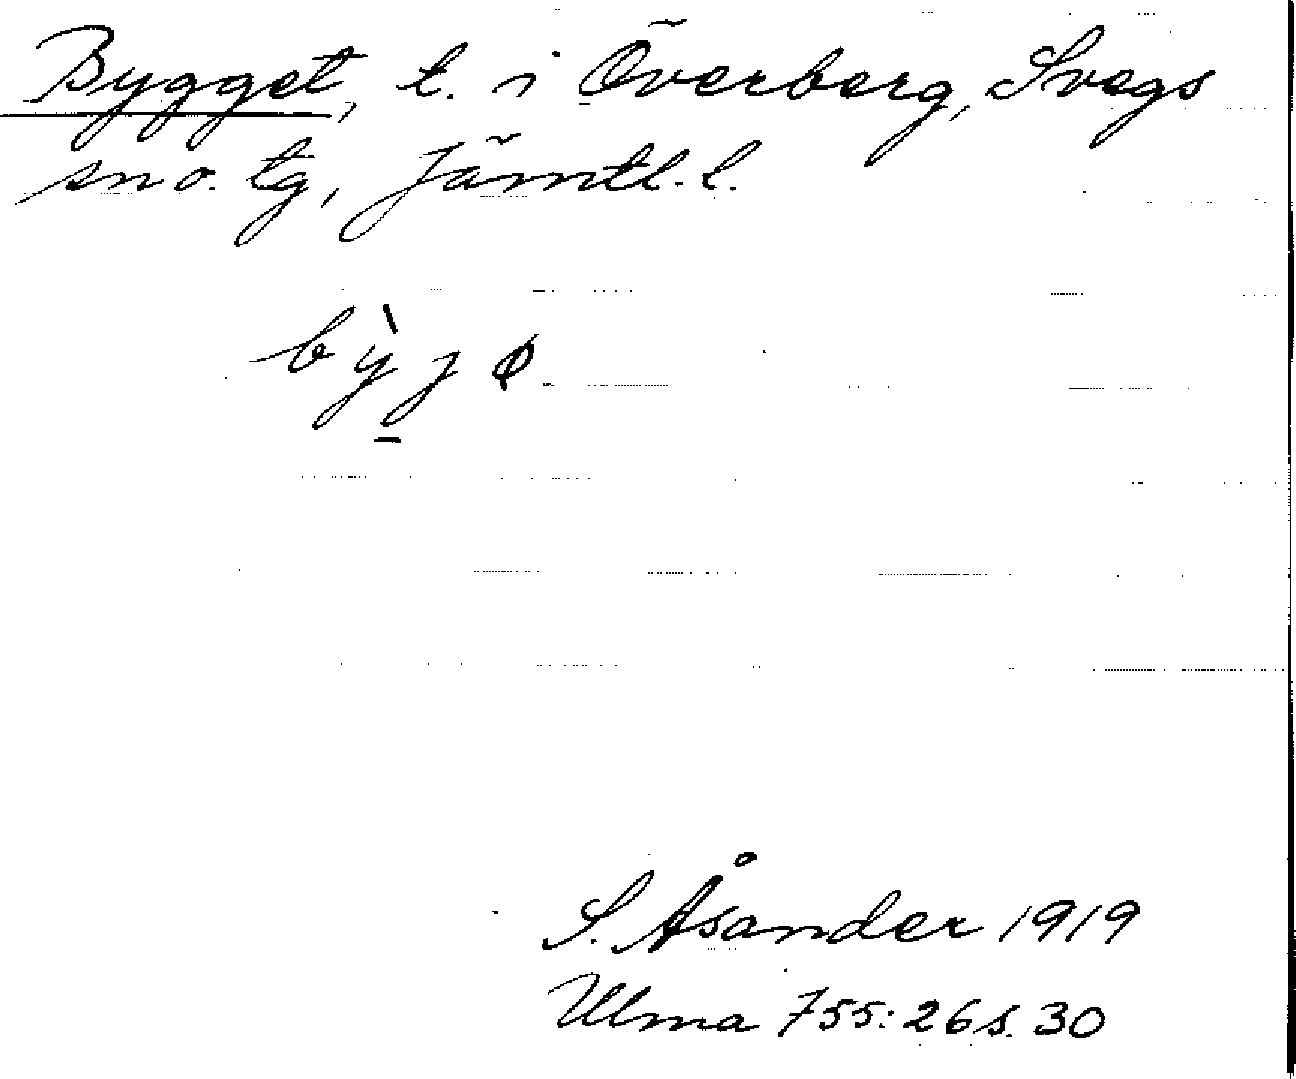 Bygget, t. i Överberg, Svegs
sn o. tg, Jämtl. l.
bỳj̱ ø
S. Åsander 1919
Ulma 755:26 s. 30